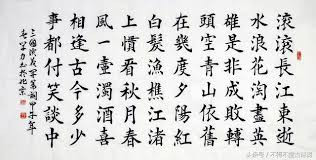 滾滾長江東逝
水浪花淘盡英
雄是非成敗轉
頭空青山依舊
在幾度夕陽紅
白髮漁樵江渚
上慣看秋月春
風一壺濁酒喜
相逢古今多少
事都付笑談中
三國演義詞甲午年
於北京
头条号